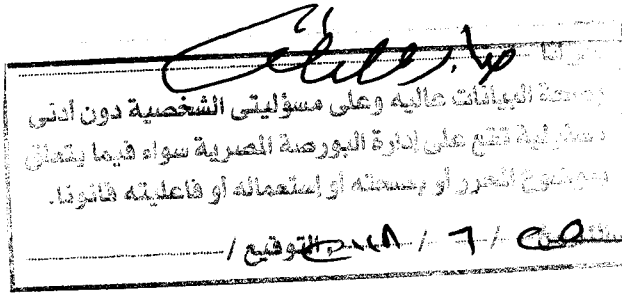 بصحة البيانات عاليه وعلى مسؤليتى الشخصية دون أدنى
مسئولية تقع على إدارة البورصة المصرية سواء فيما يتعلق
بموضوع المحرر أو بصحته أو إستعماله أو فاعليته قانونا.
/ ٦ / التوقيع /